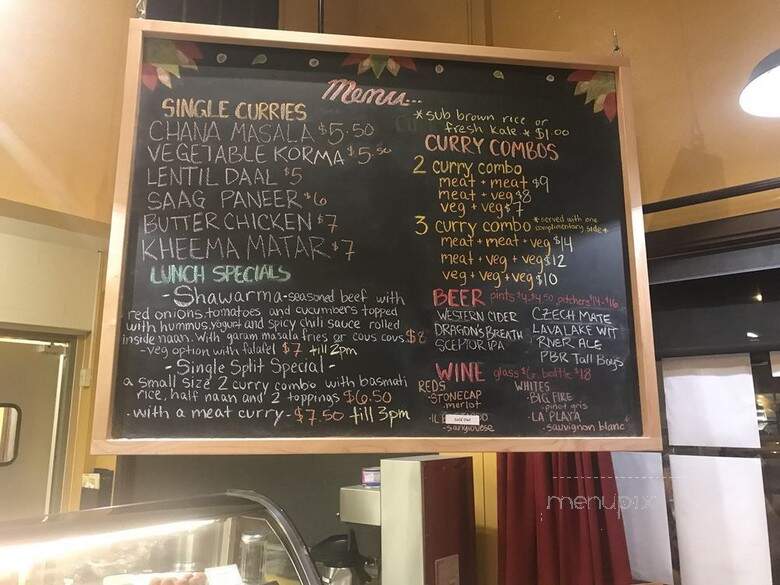 Menu...
SINGLE CURRIES
CHANA MASALA $5.50
VEGETABLE KORMA $5.50
LENTIL DAAL $5
SAAG PANEER $6
BUTTER CHICKEN $7
KHEEMA MATAR $7
LUNCH SPECIALS
- Shawarma - seasoned beef with
red onions, tomatoes and cucumbers topped
with hummus, yogurt and spicy chili sauce rolled
inside naan. With garam masala fries or cous cous $8
- veg option with falafel $7 till 2pm
- Single Split Special -
a small size 2 curry combo with basmati
rice, half naan and 2 toppings $6.50
- with a meat curry - $7.50 till 3pm
* sub brown rice or
fresh kale * $1.00
CURRY COMBOS
2 curry combo
meat + meat $9
meat + veg $8
veg + veg $7
3 curry combo *served with one
complimentary side*
meat + meat + veg $14
meat + veg + veg $12
veg + veg + veg $10
BEER pints $4-$4.50, pitchers $14-$16
WESTERN CIDER
DRAGON'S BREATH
SCEPTOR IPA
CZECH MATE
LAVA LAKE WIT
RIVER ALE
PBR Tall Boys
WINE glass $6, bottle $18
REDS
- STONECAP
- merlot
- sangiovese
WHITES
- BIG FIRE
- pinot gris
- LA PLAYA
- sauvignon blanc
menupix